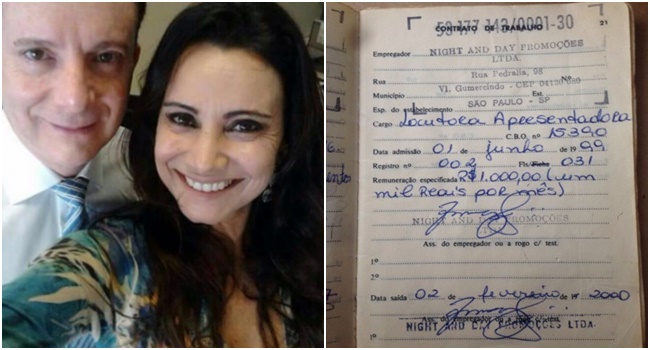 59 177 143/0001-30
21
CONTRATO DE TRABALHO
Empregador NIGHT AND DAY PROMOÇÕES
LTDA.
Rua Rua Pedralia, 98 Nº
Município Vl. Gumercindo - CEP Est.
Esp. do estabelecimento SÃO PAULO - SP
Cargo Locutora Apresentadora
C.B.O. nº 15390
Data admissão 01 de junho de 1999
Registro nº 002 Fls/Ficha 031
Remuneração especificada R$1.000,00 (um
mil Reais por mês)
NIGHT AND DAY PROMOÇÕES
LTDA
Ass. do empregador ou a rogo c/ test.
1º
2º
Data saída 02 de fevereiro de 2000
Ass. do empregador ou a rogo c/test
1º NIGHT AND DAY PROMOÇÕES LTDA.